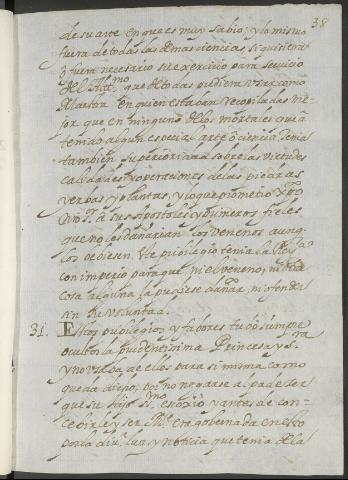 38
de su arte en que es muy sabio; y lo mismo
fuera de todas las demas ciencias, si quisiera
o fuera necesario su exercicio para servicio
del Altt.mo que de todas pudiera usar como
Maestra en quien estaban recopiladas me-
jor que en ninguno de los mortales que a
tenido algun especial arte o ciencia. Tenia
tambien superioridad sobre las virtudes
calidades y operaciones de las piedras
yerbas y plantas; y lo que prometio Xpto
Nro. Sr. a sus Apostoles y primeros fieles
que no les dañarian los venenos aunq.
los bebiesen. Este pribilegio tenia la Reyna
con imperio para que ni el veneno, ni otra
cosa alguna la pudiese dañar, ni ofender
sin su voluntad.
31. Estos pribilegios y fabores tubo siempre
ocultos la prudentisima Princesa y S.ra
y no usaba de ellos para si misma como
queda dicho, por no negarse al padecer
que su Hijo SS.mo escogio y antes de con-
cebirle y ser M.e era gobernada en esto
por la div.a luz y noticia que tenia de la